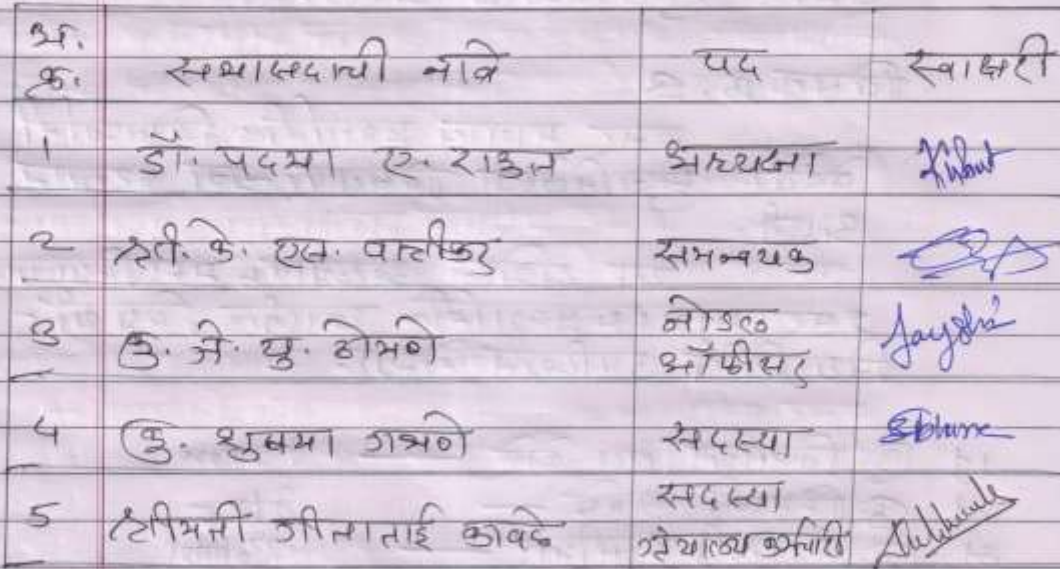 अ.
क्र. सभासदाची नांवे पद स्वाक्षरी
1 डॉ. पदमा ए. राऊत अध्यक्षा
2 श्री. के. एल. वात्तीकर समन्वयक
3 कु. जे. यु. ठोमणे नोडल
ऑफीसर Jayshri
4 कु. शुभमा गभणे सदस्या
5 श्रीमती गीताताई कावळे सदस्या